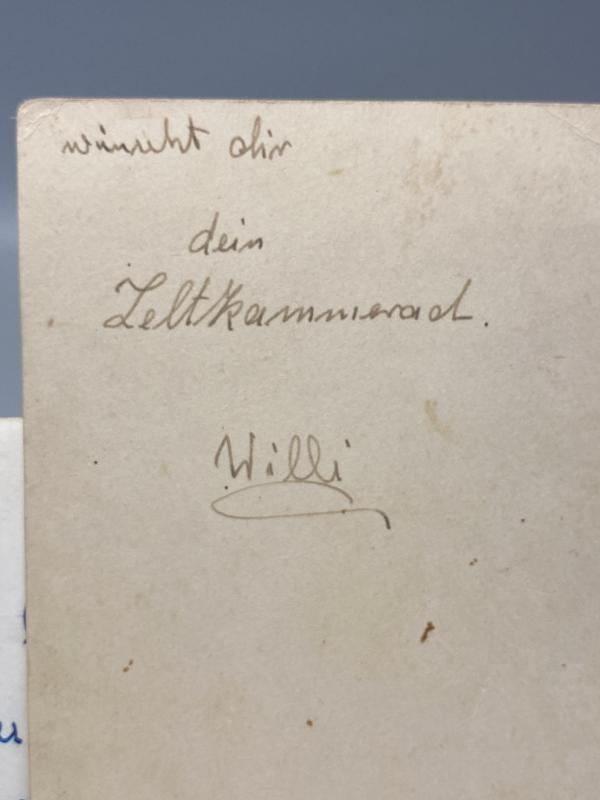 wünscht dir
dein
Zeltkammerad.
Willi